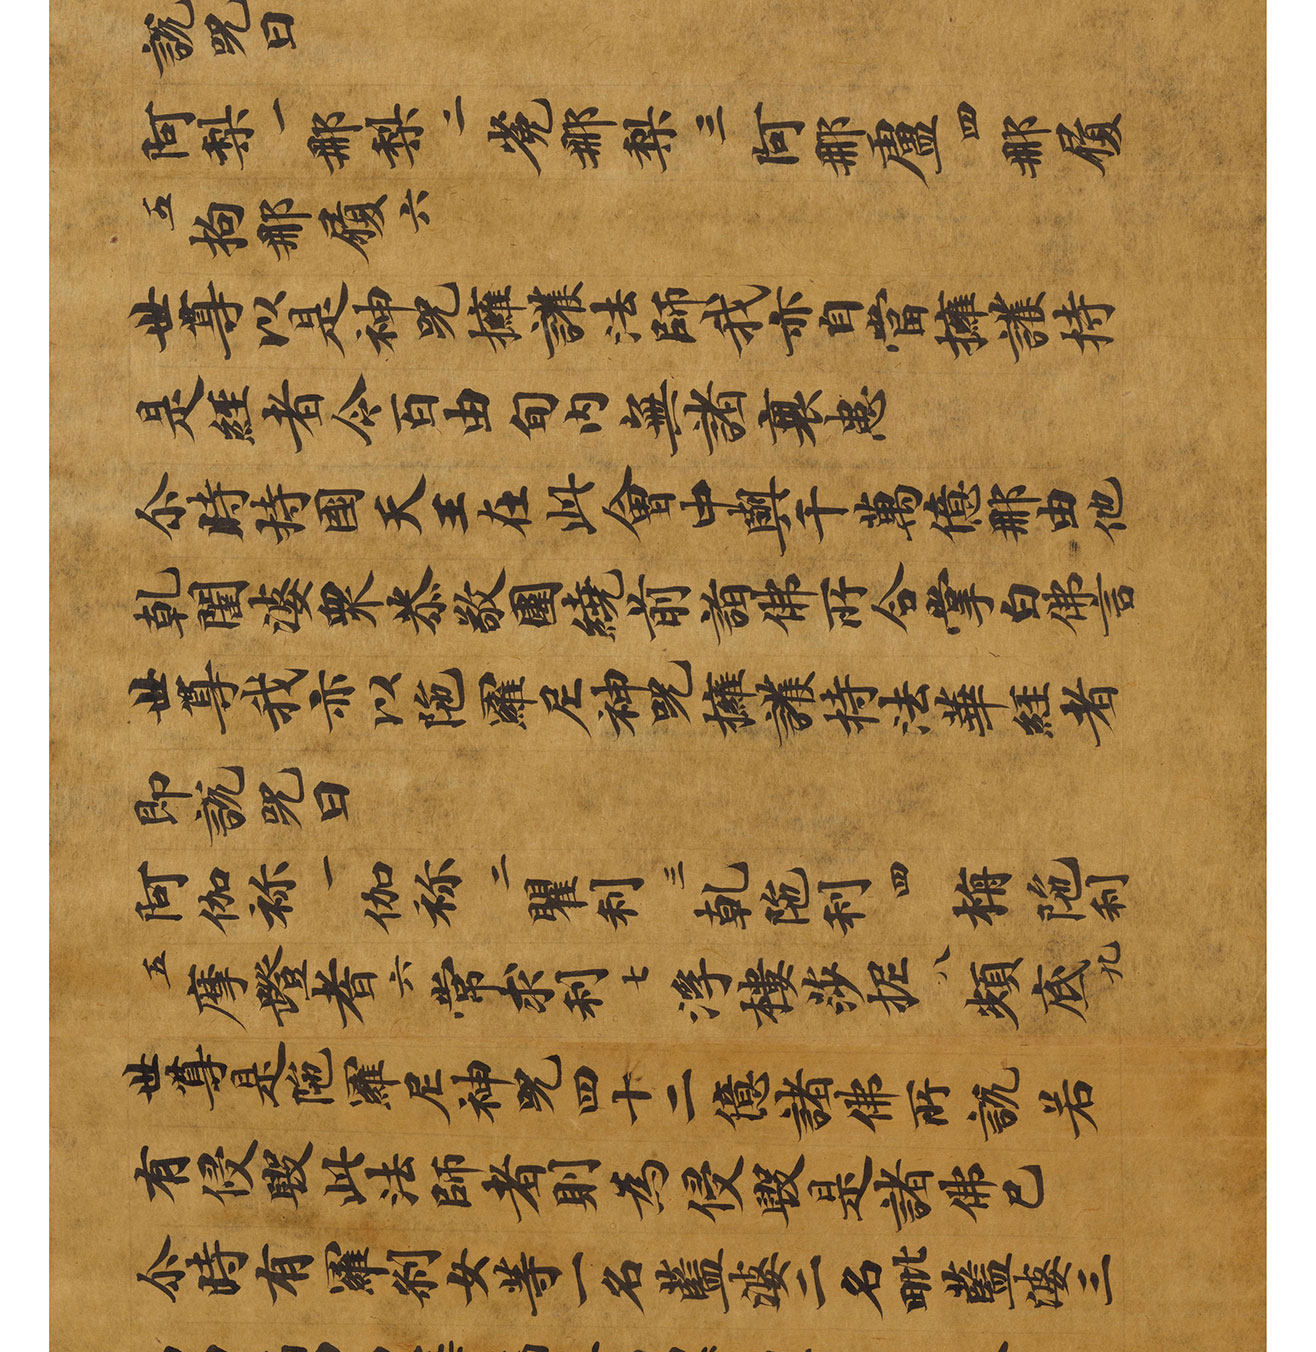 說呪曰
阿梨一那梨二㝹那梨三阿那盧四那履
五拘那履六
世尊以是神呪擁護法師我亦自當擁護持
是經者令百由旬內無諸衰患
尒時持國天王在此會中與千萬億那由他
乾闥婆眾恭敬圍繞前詣佛所合掌白佛言
世尊我亦以陁羅尼神呪擁護持法華經者
即說呪曰
阿伽祢一伽祢二瞿利三乾陁利四栴陁利
五摩蹬耆六常求利七浮樓莎抳八頞底九
世尊是陁羅尼神呪四十二億諸佛所說若
有侵毀此法師者則為侵毀是諸佛已
尒時有羅剎女等一名藍婆二名毗藍婆三